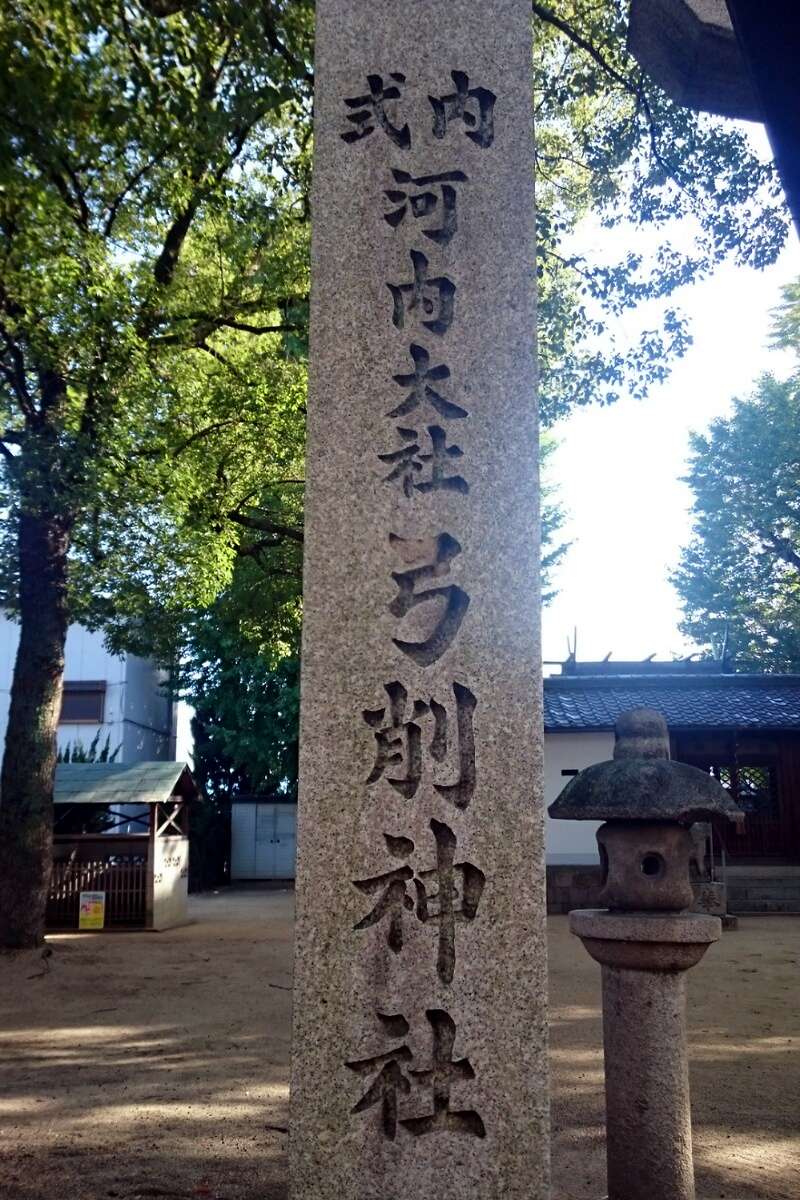 式内
河内大社弓削神社